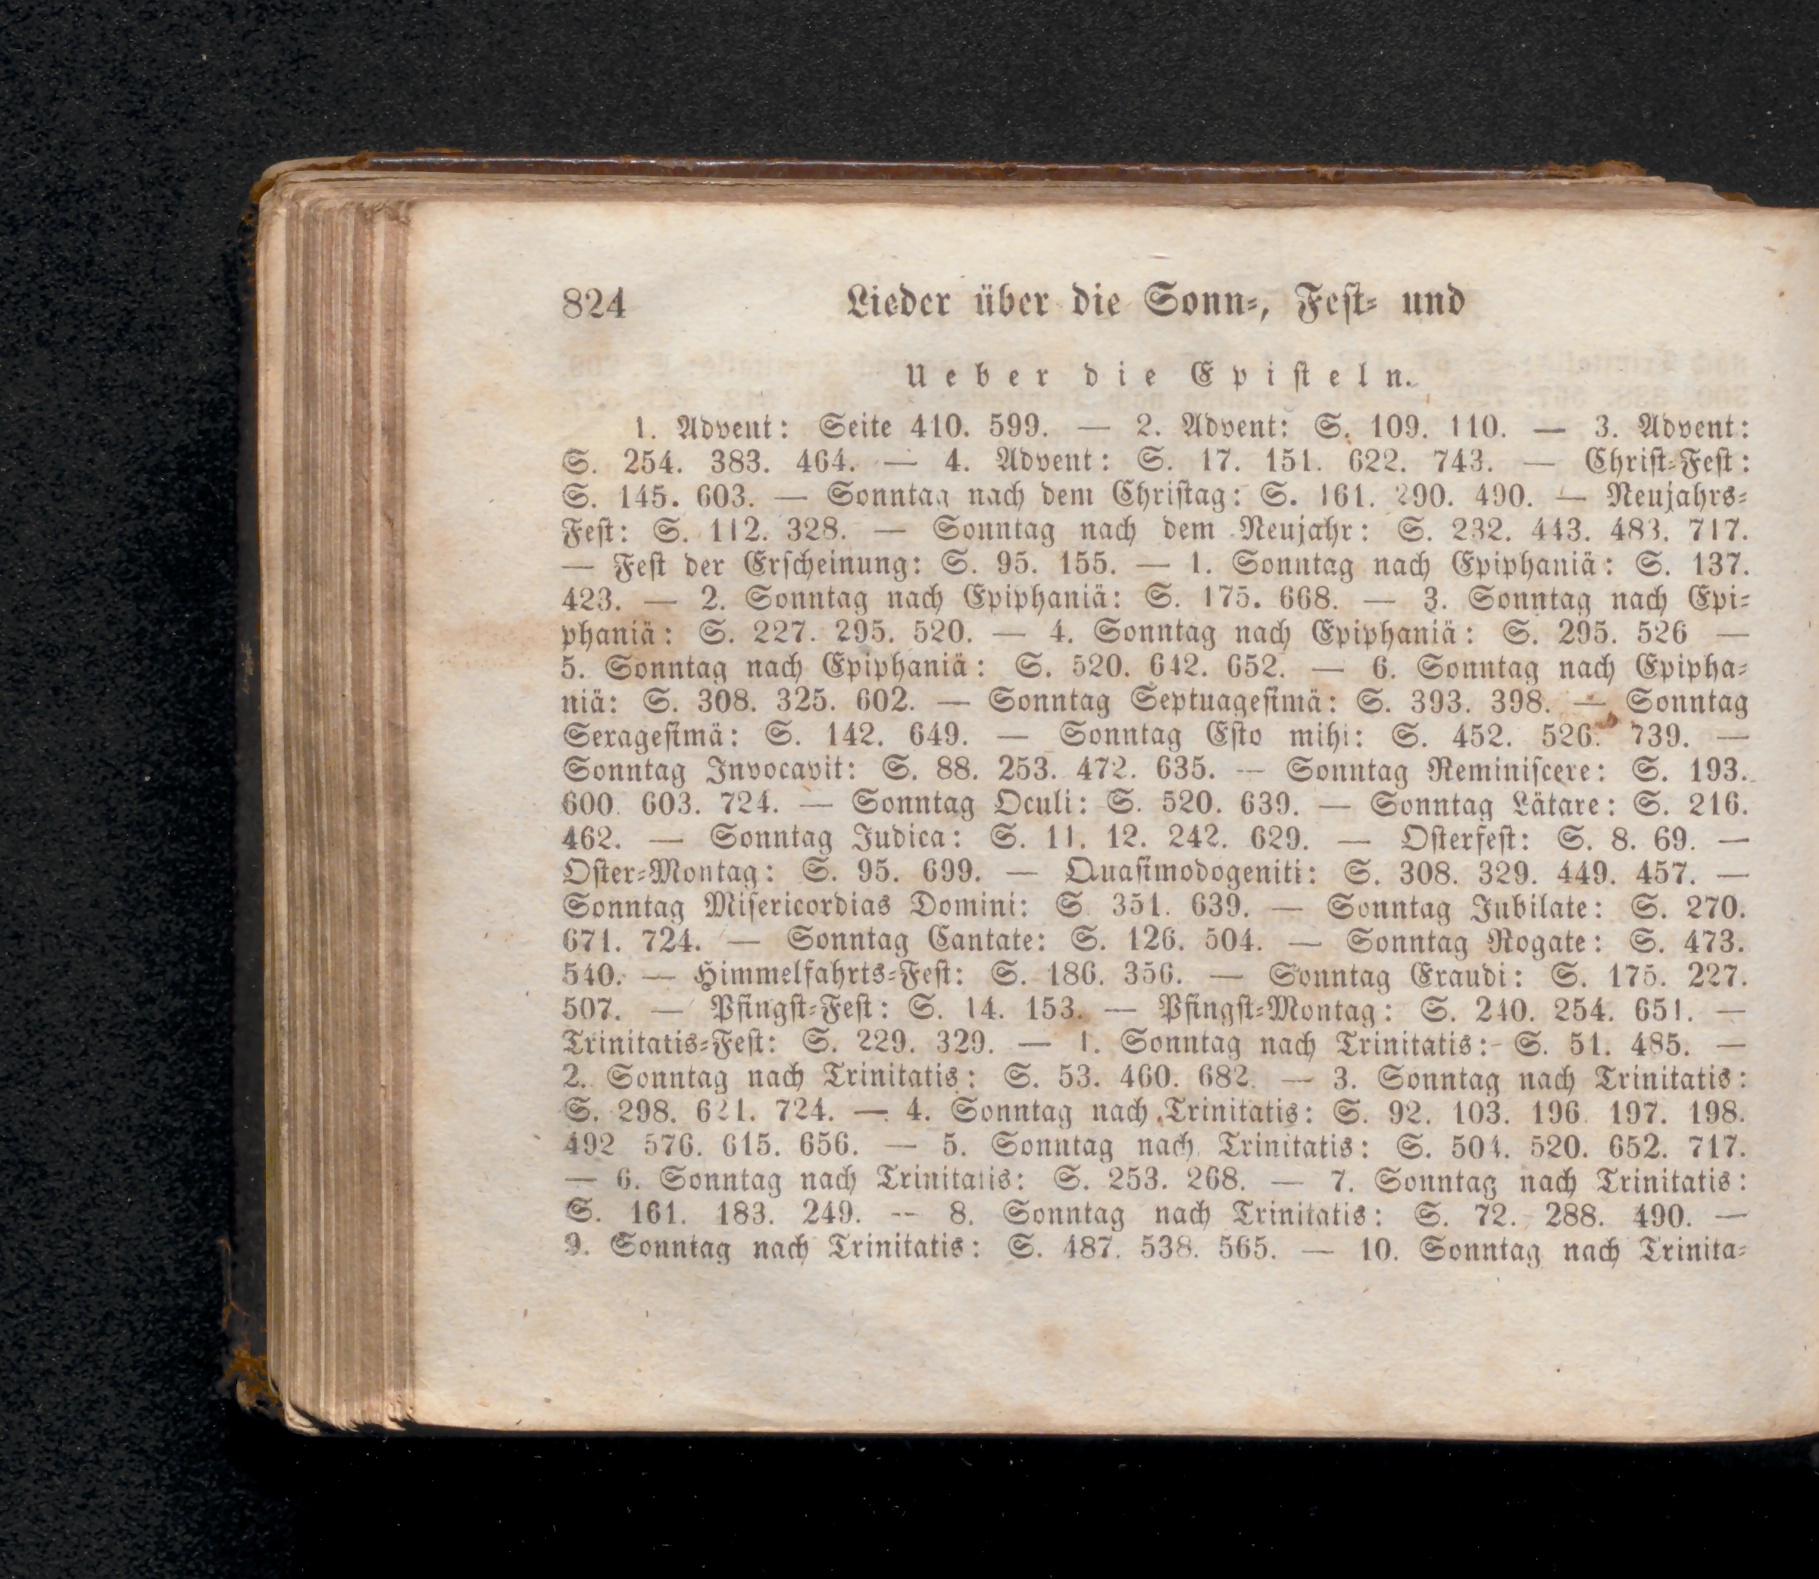 824 Lieder über die Sonn-, Fest- und
Ueber die Episteln.
1. Advent: Seite 410. 599. — 2. Advent: S. 109. 110. — 3. Advent:
S. 254. 383. 464. — 4. Advent: S. 17. 151. 622. 743. — Christ-Fest:
S. 145. 603. — Sonntag nach dem Christag: S. 161. 290. 490. — Neujahrs-
Fest: S. 112. 328. — Sonntag nach dem Neujahr: S. 232. 443. 483. 717.
— Fest der Erscheinung: S. 95. 155. — 1. Sonntag nach Epiphaniä: S. 137.
423. — 2. Sonntag nach Epiphaniä: S. 175. 668. — 3. Sonntag nach Epi-
phaniä: S. 227. 295. 520. — 4. Sonntag nach Epiphaniä: S. 295. 526 —
5. Sonntag nach Epiphaniä: S. 520. 642. 652. — 6. Sonntag nach Epipha-
niä: S. 308. 325. 602. — Sonntag Septuagesimä: S. 393. 398. — Sonntag
Sexagesimä: S. 142. 649. — Sonntag Esto mihi: S. 452. 526. 739. —
Sonntag Invocavit: S. 88. 253. 472. 635. — Sonntag Reminiscere: S. 193.
600. 603. 724. — Sonntag Oculi: S. 520. 639. — Sonntag Lätare: S. 216.
462. — Sonntag Judica: S. 11. 12. 242. 629. — Osterfest: S. 8. 69. —
Oster-Montag: S. 95. 699. — Quasimodogeniti: S. 308. 329. 449. 457. —
Sonntag Misericordias Domini: S. 351. 639. — Sonntag Jubilate: S. 270.
671. 724. — Sonntag Cantate: S. 126. 504. — Sonntag Rogate: S. 473.
540. — Himmelfahrts-Fest: S. 186. 356. — Sonntag Exaudi: S. 175. 227.
507. — Pfingst-Fest: S. 14. 153. — Pfingst-Montag: S. 240. 254. 651. —
Trinitatis-Fest: S. 229. 329. — 1. Sonntag nach Trinitatis: S. 51. 485. —
2. Sonntag nach Trinitatis: S. 53. 460. 682. — 3. Sonntag nach Trinitatis:
S. 298. 621. 724. — 4. Sonntag nach Trinitatis: S. 92. 103. 196. 197. 198.
492 576. 615. 656. — 5. Sonntag nach Trinitatis: S. 504. 520. 652. 717.
— 6. Sonntag nach Trinitatis: S. 253. 268. — 7. Sonntag nach Trinitatis:
S. 161. 183. 249. — 8. Sonntag nach Trinitatis: S. 72. 288. 490. —
9. Sonntag nach Trinitatis: S. 487. 538. 565. — 10. Sonntag nach Trinita-